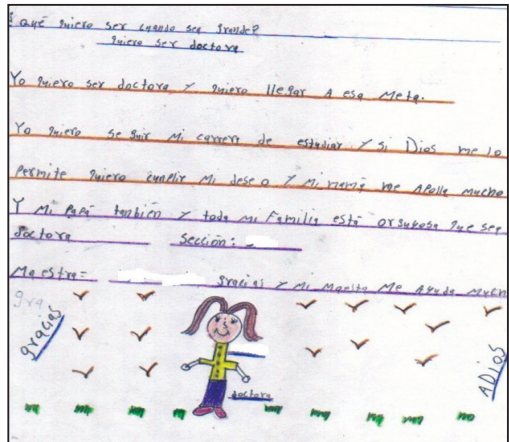 ¿ qué quiero ser cuando sea grande?
quiero ser doctora
Yo quiero ser doctora y quiero llegar A esa Meta.
Yo quiero seguir Mi carrera de estudiar y si Dios me lo
permite quiero cunplir Mi deseo y Mi mamá me Apolla mucho
Y Mi papá tanbién y toda mi Familia está orsuyosa que sea
doctora Sección:
Maestra= gracias y Mi Maestra Me ayuda much
gra
gracias
doctora
ADios